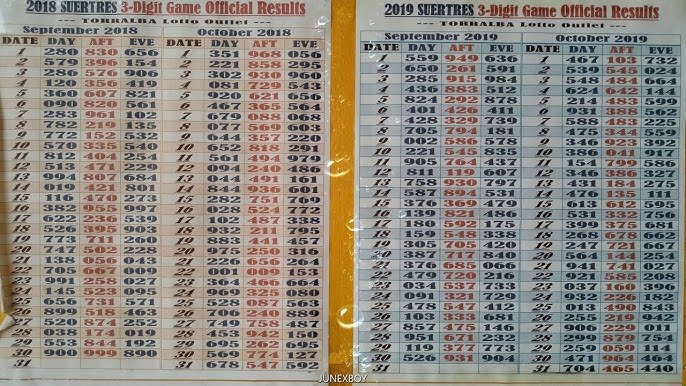 2018 SUERTRES 3-Digit Game Official Results
--- TORRALBA Lotto Outlet ---
September 2018 October 2018
DATE DAY AFT EVE DATE DAY AFT EVE
1 280 330 056 1 351 968 056
2 579 396 154 2 221 858 295
3 286 576 906 3 302 930 960
4 120 356 419 4 081 729 543
5 360 097 821 5 920 621 656
6 090 820 561 6 467 365 564
7 283 961 102 7 679 088 068
8 782 219 135 8 077 569 603
9 772 152 532 9 644 357 220
10 570 335 540 10 652 818 291
11 812 404 254 11 561 494 979
12 513 471 229 12 094 240 486
13 994 807 684 13 044 491 161
14 019 421 801 14 844 936 601
15 116 470 273 15 282 751 769
16 382 955 697 16 028 524 772
17 622 236 539 17 102 487 338
18 526 395 903 18 932 211 795
19 773 711 260 19 883 441 457
20 747 502 228 20 975 250 316
21 138 056 043 21 226 656 261
22 705 667 009 22 001 009 153
23 991 258 027 23 364 466 664
145 523 095 469 325 080
25 656 731 571 25 528 087 563
26 899 518 463 26 706 240 889
27 520 874 252 27 749 758 487
28 038 174 019 28 453 942 150
29 553 844 192 29 695 262 695
30 900 999 890 30 569 774 127
31 31 678 547 592
2019 SUERTRES 3-Digit Game Official Results
--- TORRALBA Lotto Outlet ---
September 2019 October 2019
DATE DAY AFT EVE DATE DAY AFT EVE
1 559 949 636 1 467 103 732
2 650 261 591 2 539 545 024
3 285 915 984 3 548 484 664
4 436 883 512 4 624 642 144
5 824 292 878 5 214 483 599
6 401 420 411 6 931 358 562
7 428 329 739 7 588 483 225
8 705 794 181 8 475 344 559
9 002 586 578 9 346 923 392
10 221 545 835 10 386 041 917
11 905 764 437 11 154 799 586
12 811 119 607 12 346 386 327
13 758 930 797 13 431 184 275
14 587 894 531 14 476 135 111
15 376 369 479 15 613 612 595
16 139 821 486 16 531 332 756
17 180 592 175 17 399 375 681
18 159 548 338 18 268 678 662
19 305 705 420 19 247 721 667
20 387 717 840 20 564 144 254
21 619 085 066 21 941 741 027
22 473 720 218 22 985 585 208
23 034 537 733 23 160 034 331
24 091 321 729 24 932 226 182
25 478 547 412 25 013 490 843
26 103 333 681 26 055 219 942
27 857 475 146 27 906 229 011
28 951 671 232 28 299 879 754
29 999 377 773 29 259 059 114
30 526 931 904 30 471 964 460
31 31 704 465 440
JUNEXBOY